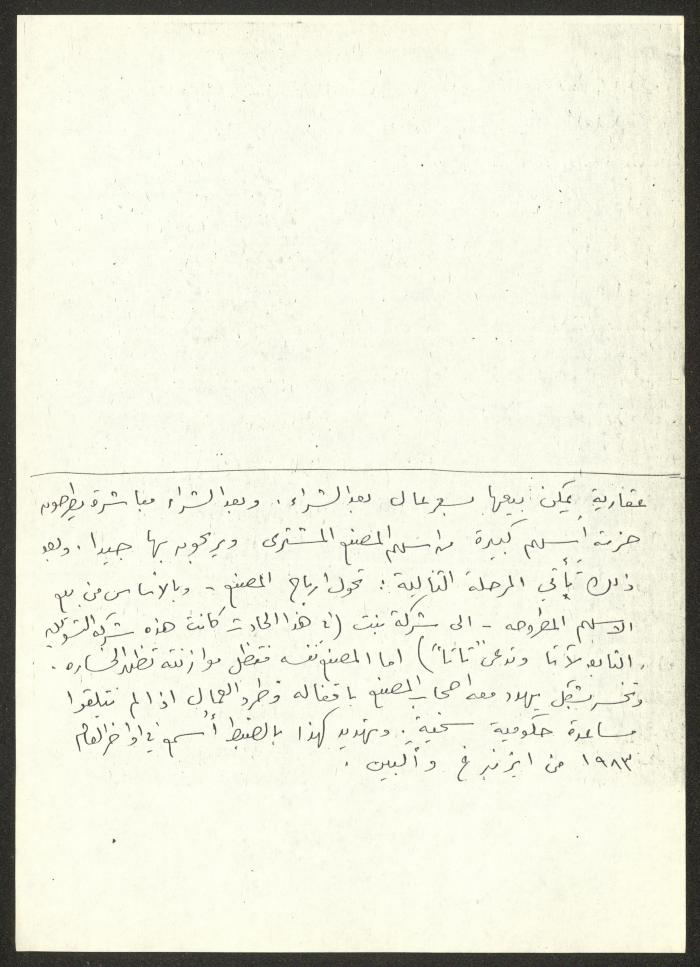 عقارية يمكن بيعها بسعر عال بعد الشراء. وبعد الشراء مباشرة يطرحون
حزمة أسهم كبيرة من اسهم المصنع المشترى ويربحون بها جيدا. وبعد
ذلك تأتي المرحلة التالية: تحول ارباح المصنع - وبالاساس من بيع
الاسهم المطروحه - الى شركة بنت (في هذا الحادث كانت هذه شركة التسويق
التابعه لآتا وتدعى "تاتا") اما المصنع نفسه فتظل موازنته تظهر الخساره.
وتخسر بشكل يهدد معه اصحاب المصنع باقفاله وطرد العمال اذا لم يتلقوا
مساعدة حكومية سخية. وتهديد كهذا بالضبط أسمع في اواخر العام
١٩٨٣ من ايزنبرغ وألبين.